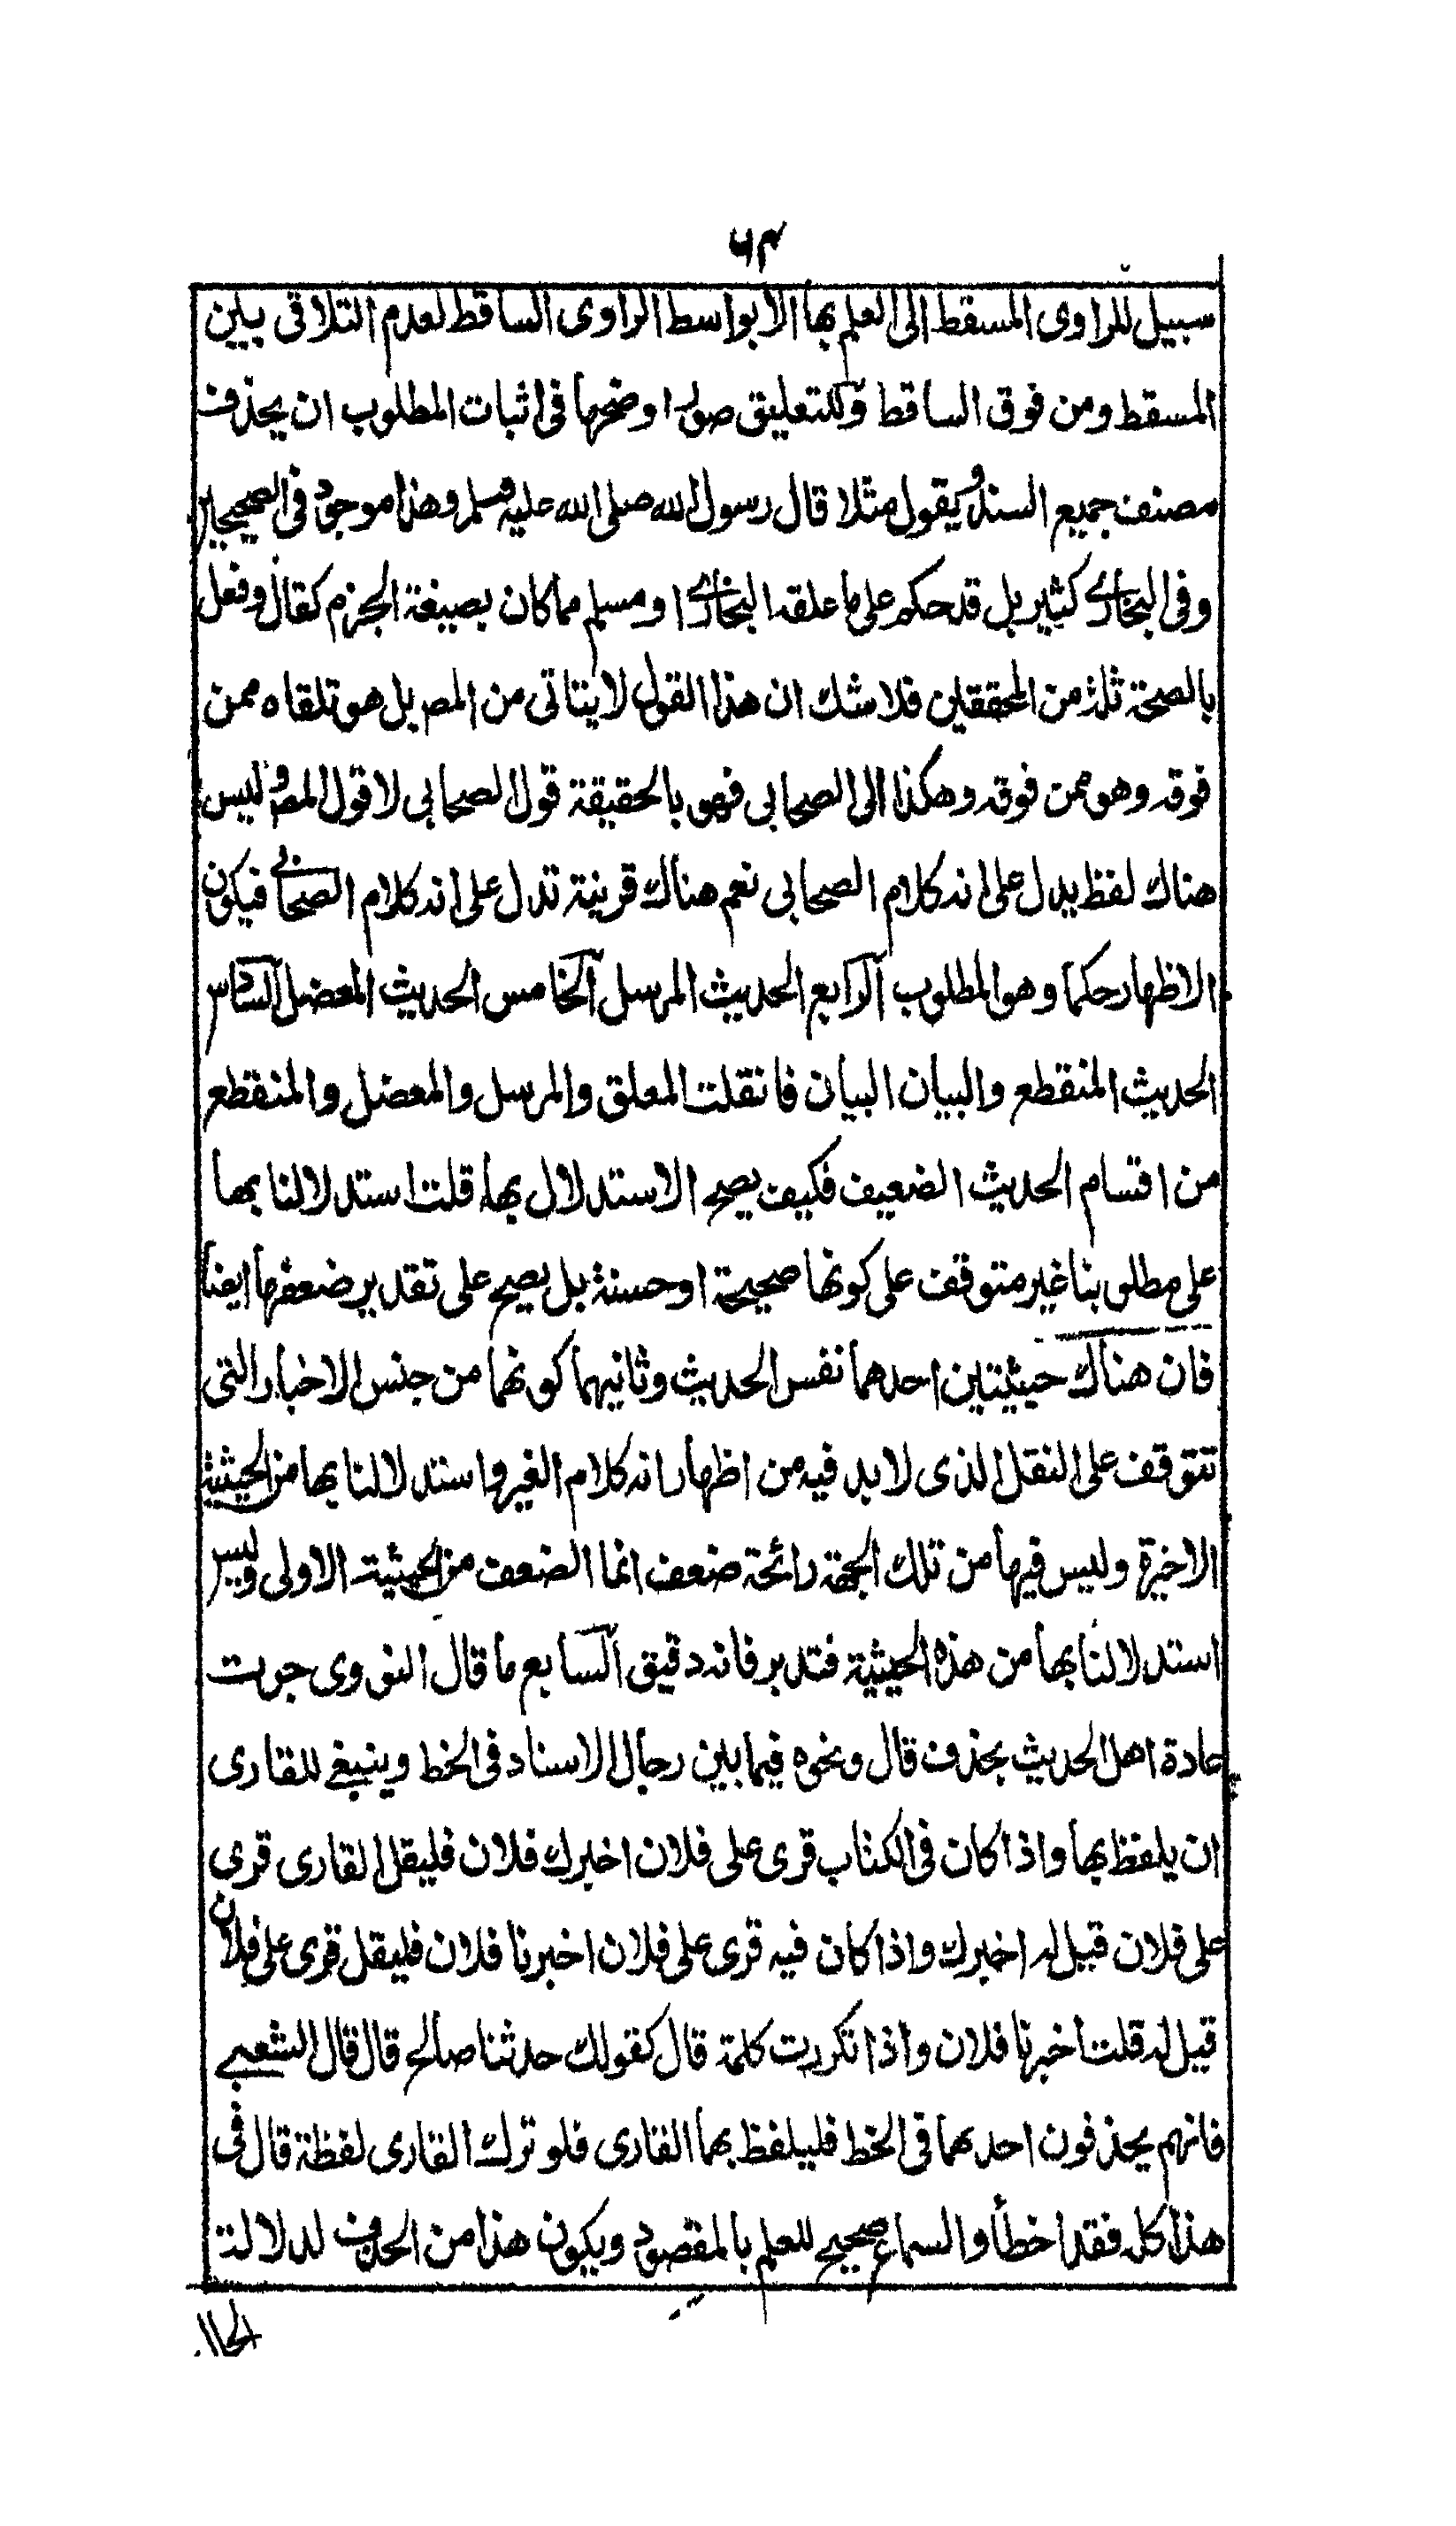 ۶۴
سبيل للراوى المسقط الى العلم بها الا بواسط الراوى الساقط لعدم التلاقى بين
المسقط ومن فوق الساقط وللتعليق صور اوضحها فى اثبات المطلوب ان يحذف
مصنف جميع السند ويقول مثلا قال رسول الله صلى الله عليه وسلم وهذا موجود فى الصحيحين
وفى البخارى كثير بل قد حكم على ما علقه البخارى او مسلم مما كان بصيغة الجزم كقال وفعل
بالصحة ثلة من المحققين فلا شك ان هذا القول لا يتاتى من المص بل هو تلقاه ممن
فوقه وهو ممن فوقه وهكذا الى الصحابى فهو بالحقيقة قول الصحابى لا قول المص وليس
هناك لفظ يدل على انه كلام الصحابى نعم هناك قرينة تدل على انه كلام الصحابى فيكون
الاظهار حكما وهو المطلوب الرابع الحديث المرسل الخامس الحديث المعضل السادس
الحديث المنقطع والبيان البيان فان قلت المعلق والمرسل والمعضل والمنقطع
من اقسام الحديث الضعيف فكيف يصح الاستدلال بها قلت استدلالنا بها
على مطلوبنا غير متوقف على كونها صحيحة او حسنة بل يصح على تقدير ضعفها ايضا
فان هناك حيثيتين احدهما نفس الحديث وثانيهما كونها من جنس الاخبار التى
تتوقف على النقل الذى لا بد فيه من اظهار انه كلام الغير واستدلالنا بها من الحيثية
الاخيرة وليس فيها من تلك الجهة رائحة ضعف انما الضعف من الحيثية الاولى وليس
استدلالنا بها من هذه الحيثية فتدبر فانه دقيق السابع ما قال النووى جرت
عادة اهل الحديث بحذف قال ونحوه فيما بين رجال الاسناد فى الخط وينبغى للقارى
ان يلفظ بها واذا كان فى الكتاب قرى على فلان اخبرك فلان فليقل القارى قرى
على فلان قيل له اخبرك واذا كان فيه قرى على فلان اخبرنا فلان فليقل قرى على فلان
قيل له قلت اخبرنا فلان واذا تكررت كلمة قال كقولك حدثنا صالح قال قال الشعبى
فانهم يحذفون احدهما فى الخط فليلفظ بهما القارى فلو ترك القارى لفظة قال فى
هذا كله فقد اخطأ والسماع صحيح للعلم بالمقصود ويكون هذا من الحذف لدلالة
الحال